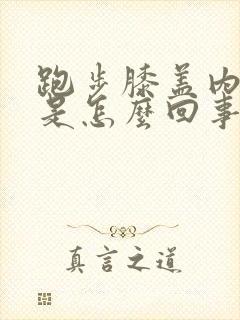 跑步膝盖内
是怎麼回事
真言之道